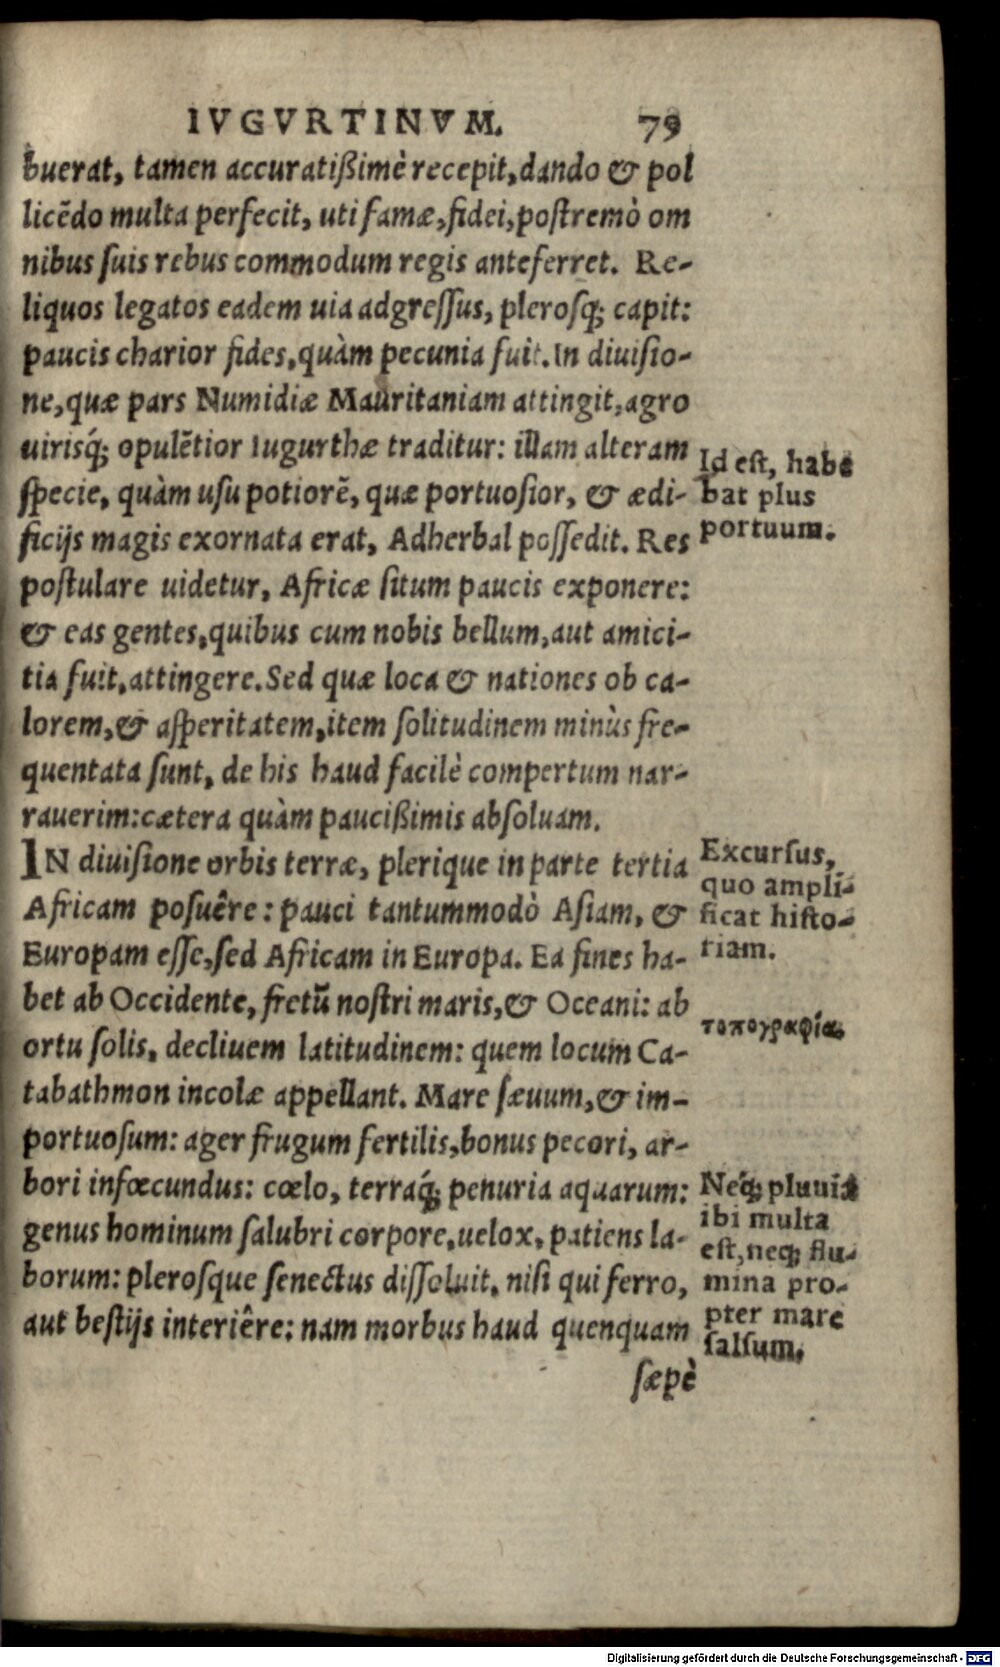 IVGVRTINVM. 79
buerat, tamen accuratißimè recepit, dando & pol
licẽdo multa perfecit, uti famæ, fidei, postremò om
nibus suis rebus commodum regis anteferret. Re-
liquos legatos eadem uia adgressus, plerosq; capit:
paucis charior fides, quàm pecunia fuit. In diuisio-
ne, quæ pars Numidiæ Mauritaniam attingit, agro
uirisq́; opulẽtior Iugurthæ traditur: illam alteram
specie, quàm usu potiorẽ, quæ portuosior, & ædi-
ficijs magis exornata erat, Adherbal possedit. Res
postulare uidetur, Africæ situm paucis exponere:
& eas gentes, quibus cum nobis bellum, aut amici-
tia fuit, attingere. Sed quæ loca & nationes ob ca-
lorem, & asperitatem, item solitudinem minùs fre-
quentata sunt, de his haud facilè compertum nar-
rauerim: cætera quàm paucißimis absoluam.
IN diuisione orbis terræ, plerique in parte tertia
Africam posuêre: pauci tantummodò Asiam, &
Europam esse, sed Africam in Europa. Ea fines ha-
bet ab Occidente, fretũ nostri maris, & Oceani: ab
ortu solis, decliuem latitudinem: quem locum Ca-
tabathmon incolæ appellant. Mare sæuum, & im-
portuosum: ager frugum fertilis, bonus pecori, ar-
bori infœcundus: cœlo, terraq́; penuria aquarum:
genus hominum salubri corpore, uelox, patiens la-
borum: plerosque senectus dissoluit, nisi qui ferro,
aut bestijs interiêre: nam morbus haud quenquam
sæpè
Id est, habe
bat plus
portuum.
Excursus,
quo ampli-
ficat histo-
riam.
τοπογραφία.
Neq́; pluuia
ibi multa
est, neq; flu-
mina pro-
pter mare
salsum.
Digitalisierung gefördert durch die Deutsche Forschungsgemeinschaft - DFG